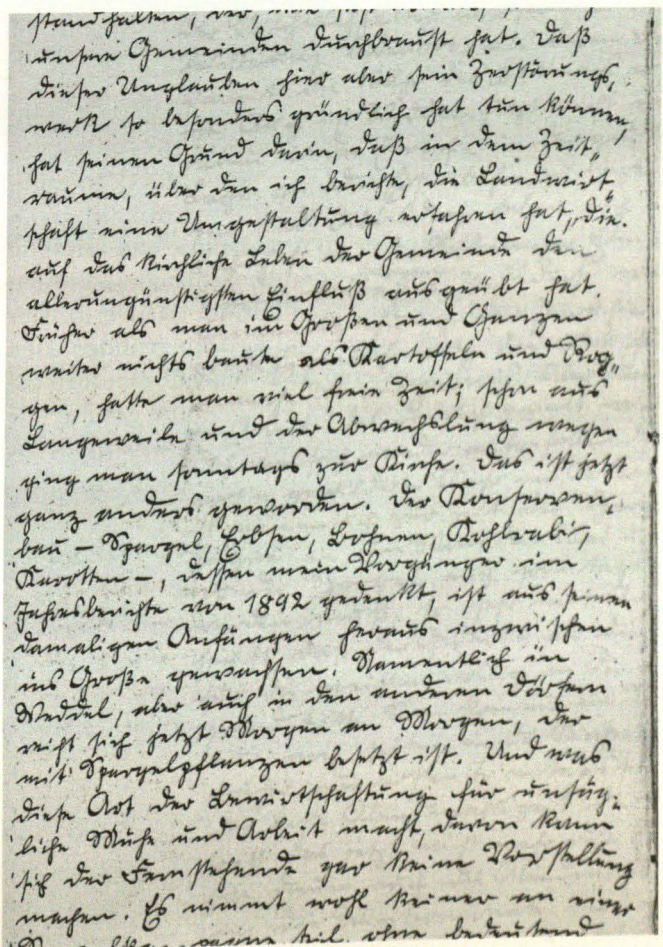 standhalten, der,
unsere Gemeinden durchbraust hat. Daß
dieser Unglauben hier aber sein Zerstörungs-
werk so besonders gründlich hat tun können,
hat seinen Grund darin, daß in dem Zeit-
raume, über den ich berichte, die Landwirt-
schaft eine Umgestaltung erfahren hat, die
auf das kirchliche Leben der Gemeinde den
allerungünstigsten Einfluß ausgeübt hat.
Früher als man im Großen und Ganzen
weiter nichts baute als Kartoffeln und Rog-
gen, hatte man viel freie Zeit; schon aus
Langeweile und der Abwechslung wegen
ging man sonntags zur Kirche. Das ist jetzt
ganz anders geworden. Der Konserven-
bau – Spargel, Erbsen, Bohnen, Kohlrabi,
Karotten –, dessen mein Vorgänger im
Jahresberichte von 1892 gedenkt, ist aus seinen
damaligen Anfängen heraus inzwischen
ins Große gewachsen. Namentlich in
Weddel, aber auch in den anderen Dörfern
reiht sich jetzt Morgen an Morgen, der
mit Spargelpflanzen besetzt ist. Und was
diese Art der Bewirtschaftung für unsäg-
liche Mühe und Arbeit macht, davon kann
sich der Fernstehende gar keine Vorstellung
machen. Es nimmt wohl keiner an einer
teil, ohne bedeutend